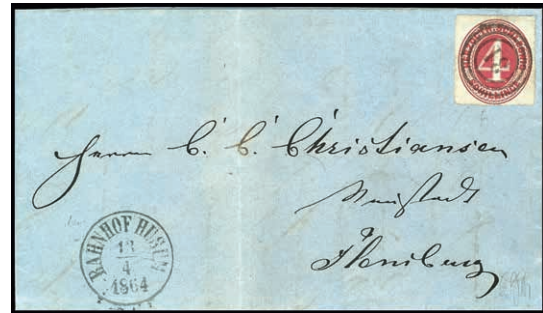 4
Herrn C. C. Christiansen
Neustadt
Flensburg
BAHNHOF HUSUM
13
4
1864